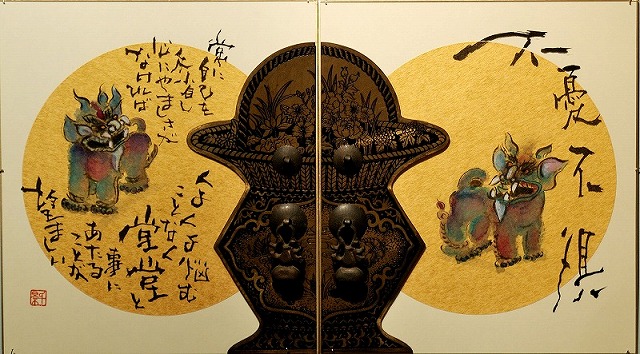 不憂不懼
常に自己を
内省し
心にやましさが
なければ
くよくよ悩む
ことなく
堂堂と
事に
あたる
ことが
望ましい